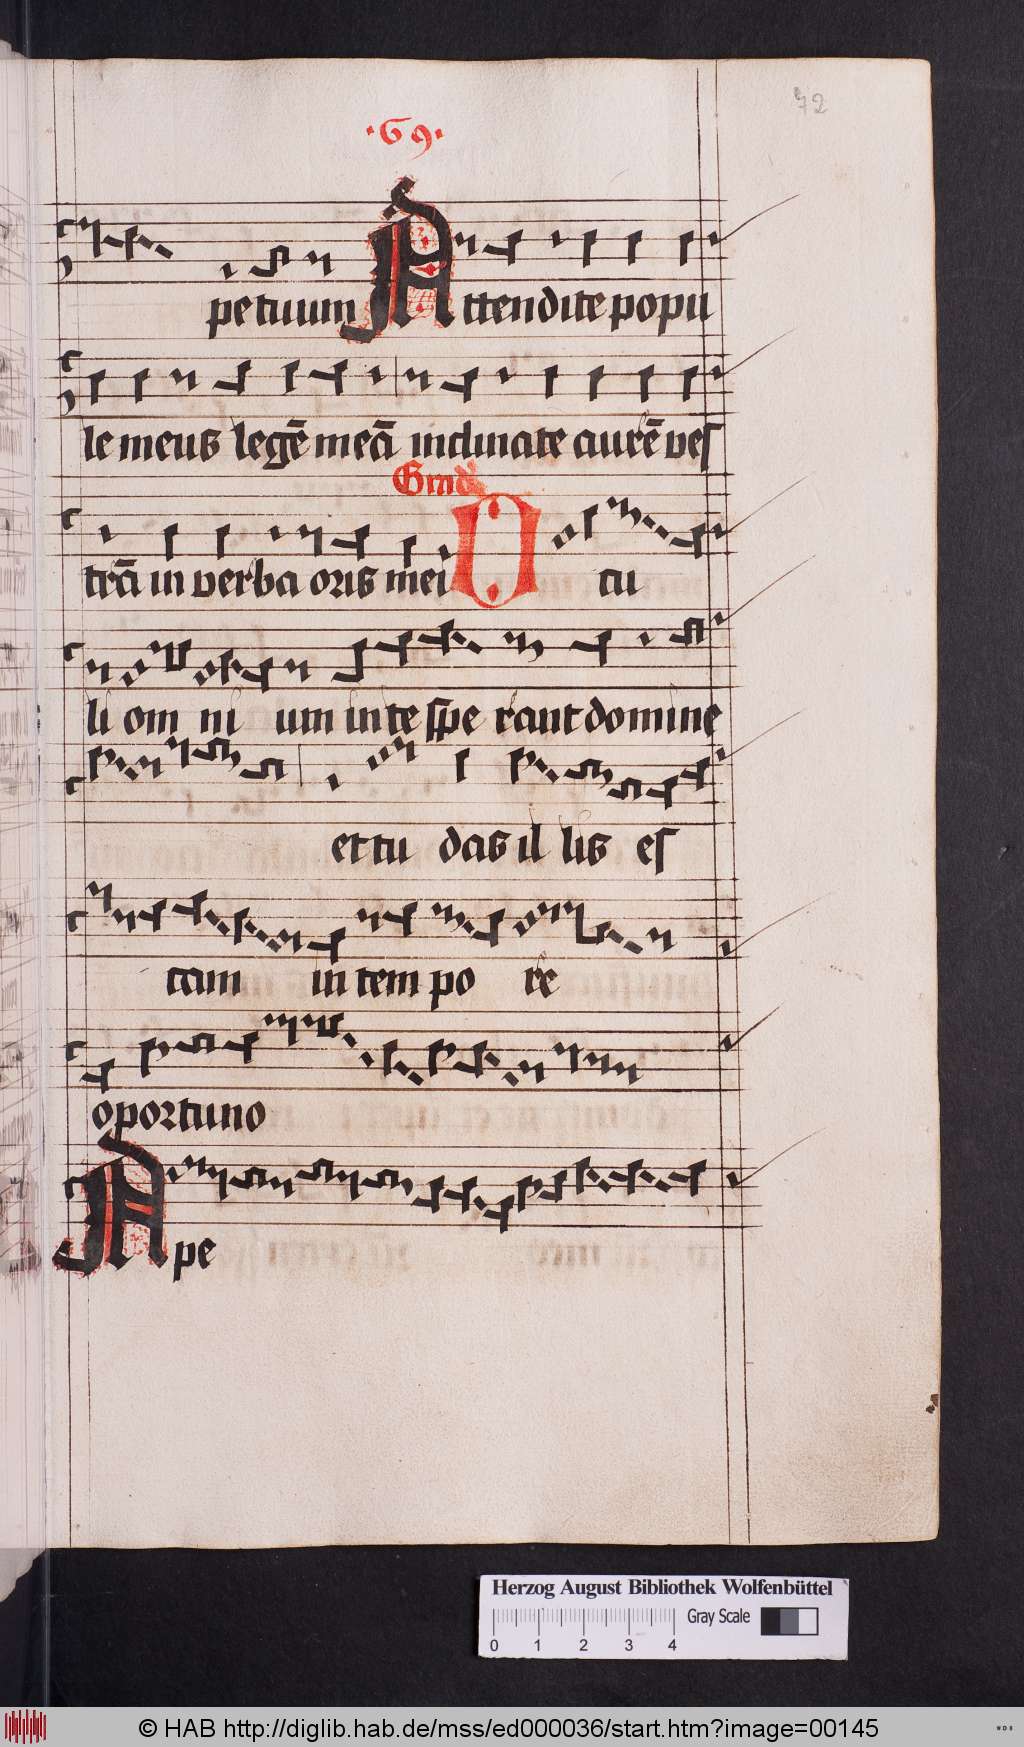 72
·69·
petuum Attendite popu
le meus legē meā inclinate aurē ves
trā in verba oris mei Grad Ocu
li om ni um in te spe rant domine
et tu das il lis es
cam in tem po re
oportuno
Ape
Herzog August Bibliothek Wolfenbüttel
Gray Scale
0 1 2 3 4
© HAB http://diglib.hab.de/mss/ed000036/start.htm?image=00145